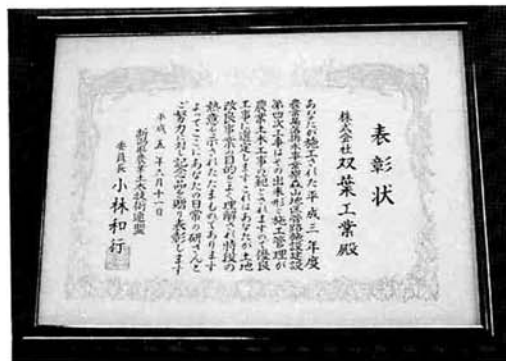 表彰状
株式会社 双葉工業殿
あなたが施工された平成三年度
農業集落排水事業 森山地区管路施設建設
第四次工事はその出来形と施工管理が
農業土木工事の範とされますので優良
工事に選定しますこれはあなたが土地
改良事業の目的をよく理解され特段の
熱意を示されたたまものであります
よってここにあなたの日常の研さんと
ご努力に対し記念品を贈り表彰します
平成五年六月十一日
新潟県農業土木技術連盟
委員長 小林和行